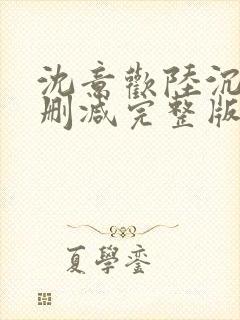 沈意歡陸沉
刪減完整版
夏學鑾